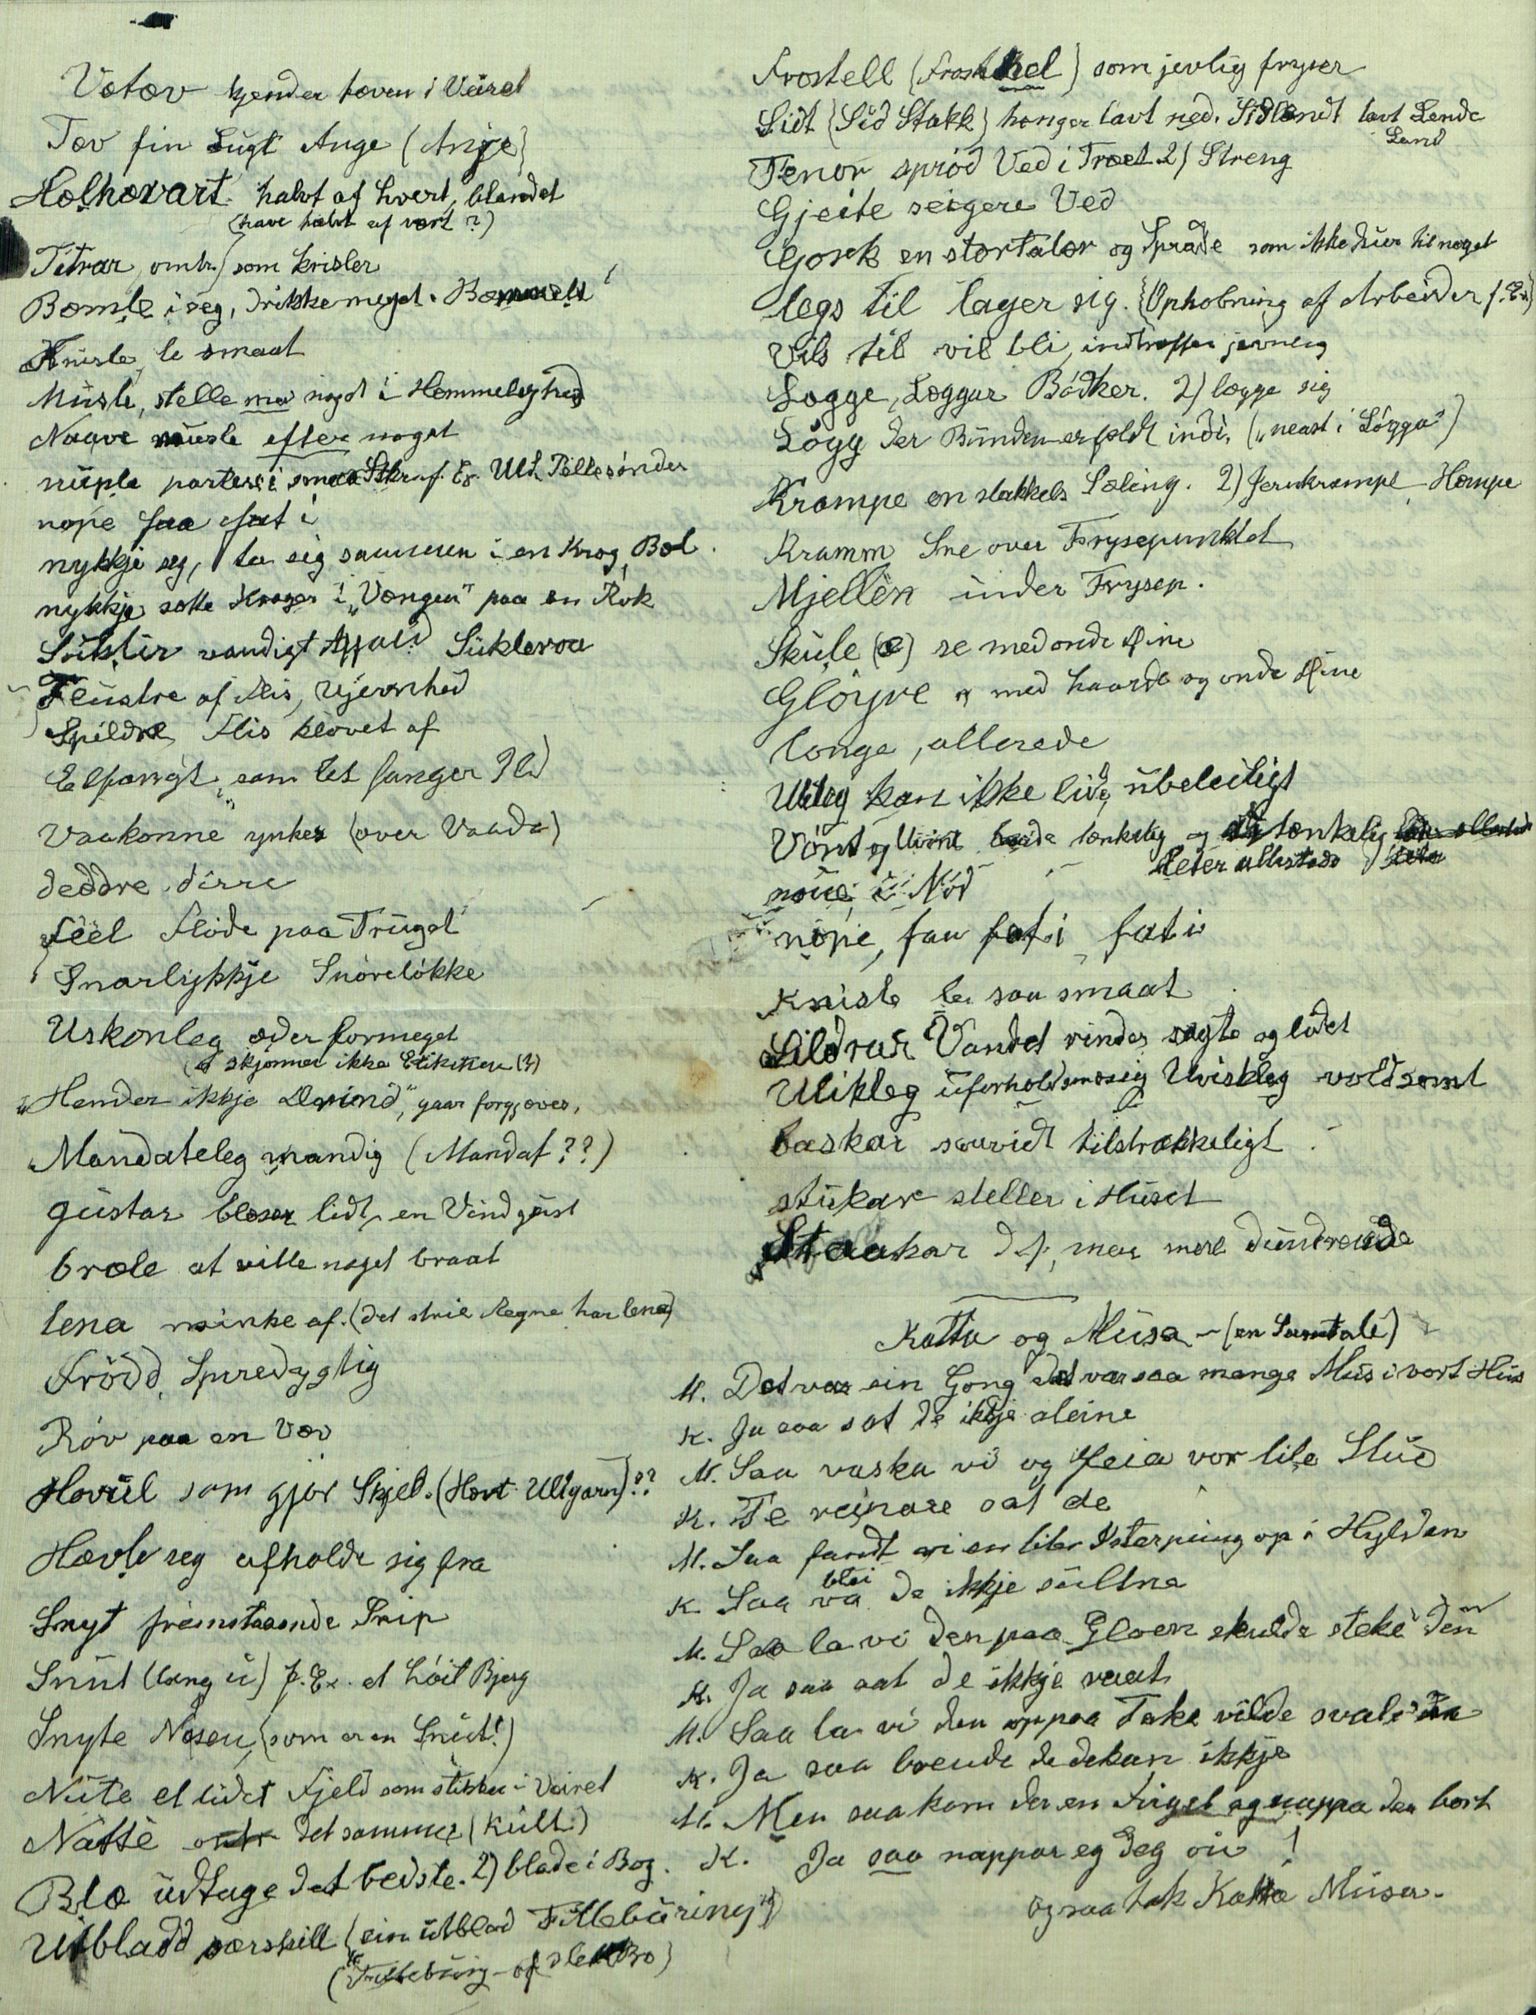 Vetæv kjender tæven i Veiret
Tæv fin Lugt Ange (Angje)
Hælhævart. halvt af hvert, blandet
(have halvt af vært?)
Titrar, omtr. som krisler
Bæmle i seg, drikke meget.
Knisle, le smaat
Musle, stelle med noget i Hemmelighed
Naave musle efter noget
nuple partere i smaa Stkr f. Ex. Uld, Pille sónder
nope faa fat i
nykkje seg, ta sig sammen i en Krog, Bol
nykkje, sætte Kroger i "Vængen" paa en Rok
Sutlir vandigt Affald Sukleroa
Flustre af Flis, Ujevnhed
Spildre, Flis kløvet af
Elfængt, som let fanger Ild
Vaakonne ynkes (over Vaade)
deddre dirre
féel Flóde paa Truget
Snarlykkje Snóreløkke
Uskonleg æder formeget
(skjønner ikke Etiketten (?)
"Hender ikkje Dørind", gaar forgjæves,
Mandateleg mandig (Mandat??)
gustar blæser lidt, en Vindgust
bræle at ville noget braat
lena minke af. (det strie Regne har lena)
Frødd, Spiredygtig
Róv paa en Væv
Hovul som gjór Skjel. (Hovt Ullgarn)??
Hævle seg afholde sig fra
Snyt fremstaaende Snip
Snut (lang u) f. Ex. et Lóit Bjerg
Snyte Nosen, (som er en Snut!)
Nute et lidet Fjeld som stikker i Veiret
Natte det samme (Kult)
Blæ udtage det bedste. 2) blade i Bog.
Utbladd særskilt (ein utblad Filleburing)
(Fillebuing - af slet Bo)
Frostell (Frosthæl) som jevlig fryser
Sidt (Sid Stakk) hænger lavt ned. Sidlændt lavt Lende
Land
Tenór spród Ved i Træet 2) Streng
Gjeite seigere Ved
Gosk en stortalær og Spraade som ikke duer til noget
legs til lager sig. (Ophobning af Arbeider f. Ex)
Vils til vil bli, indtræffer jævnlig
Lagge, Læggar Bódker. 2) lægge sig
Lógg der Bunden er fældt indi. ("neast i Lógga")
Krampe en stakkels Sæling. 2) Jernkrampe, Hæmpe
Kramm Sne over Frysepunktet
Mjellen under Frysep.
Skule (e) se med onde Øine
Glóyre " med haarde og onde Øine
longe, allerede
Utleg kan ikke lide, ubeleiligt
Vónt og Uvónt baade tænkelig og utænkelig
leder allestads
noue i Nód
nópe, faa fat i
Knisle le saa smaat
Sildrar Vandet rinder sagte og lidet
Ulikleg uforholdsmæsig Uviskleg voldsomt
baskar saavidt tilstrækkeligt
stukar steller i Huset
Staakar do, men mere dundrende
Katta og Musa - (en Samtale)
M. Det var ein Gong det var saa mange Mus i vort Hus
K. Ja saa sat de ikkje aleine
M. Saa vaska vi og feia vor lile Stue
K. Te reinare sat de
M. Saa fandt vi en liten Isterpung op i Hylden
K. Saa blei de ikkje sultne
M. Saa la vi den paa Gloen skulde steke den
K. Ja saa aat de ikkje raat
M. Saa la vi den oppaa Take vilde svale an
K. Ja saa brende de dekan ikkje
M. Men saa kom der en Fugel og nappa den bort
K. Ja saa nappar eg deg ou!
og saa tok Katta Musa.